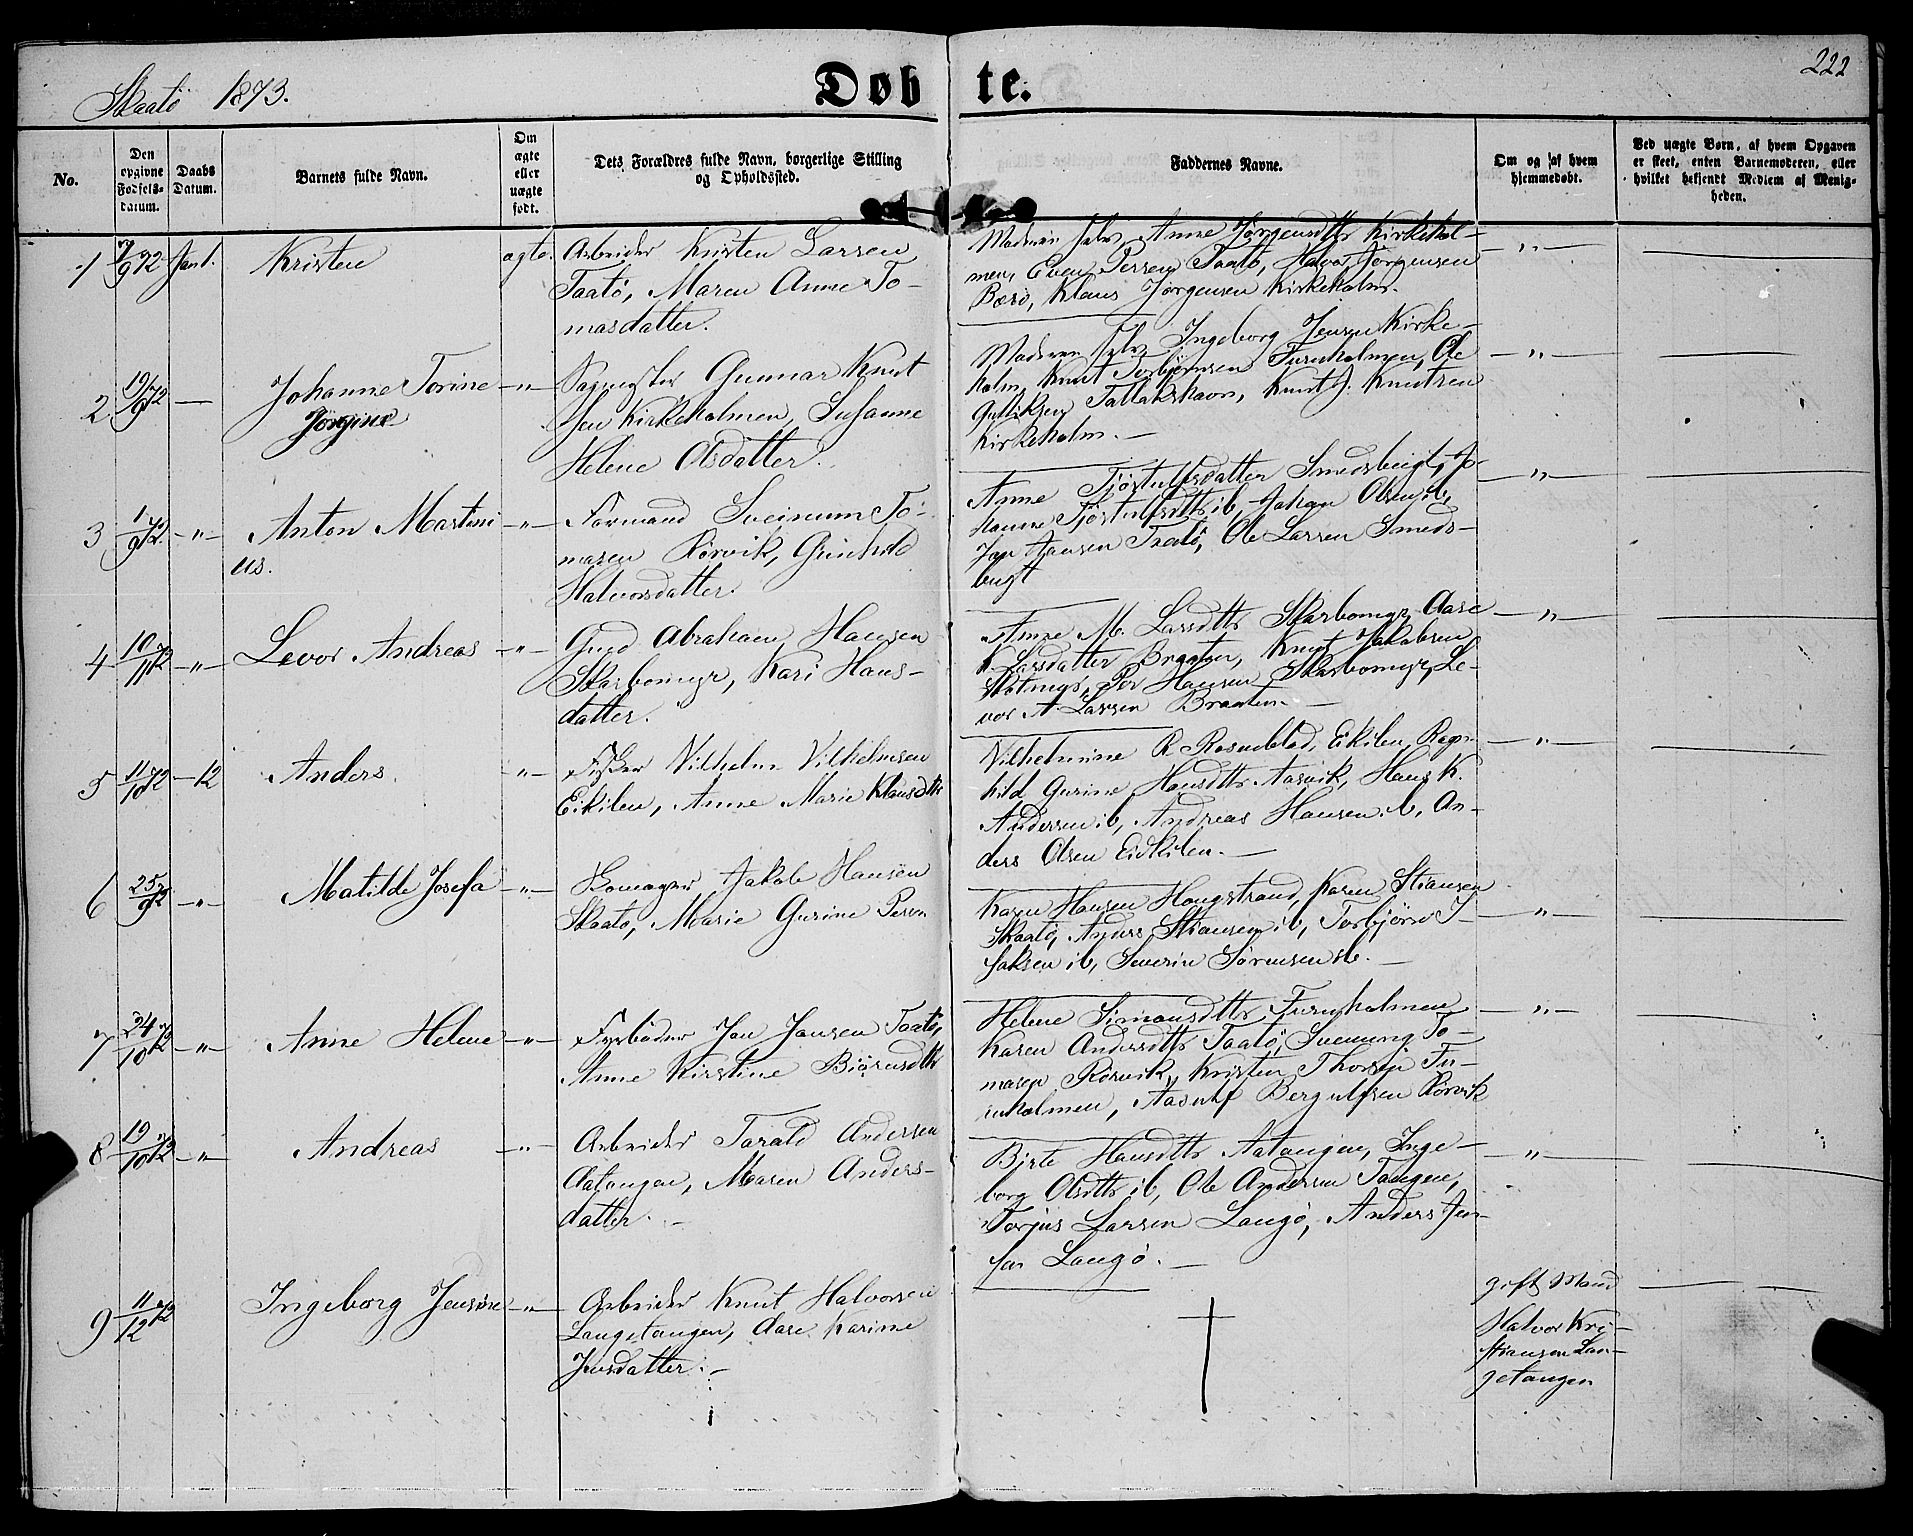 Skaatø 1873.
Døbte.
222
No.
Den opgivne Fødsels-datum.
Daabs Datum.
Barnets fulde Navn.
Om ægte eller uægte født.
Dets Forældres fulde Navn, borgerlige Stilling og Opholdssted.
Faddernes Navne.
Om og af hvem hjemmedøbt.
Ved uægte Børn, af hvem Opgaven er skeet, enten Barnemoderen, eller hvilket bekjendt Medlem af Menigheden.
1 7/9 72 Jan 1. Kristen ægte. Arbeider Kristen Larsen
Taatø, Maren Anne To-
masdatter.
Moderen selv, Anne Jørgensdtr Kirkehol-
men, Even Persen Taatø, Halvor Jørgensen
Bærø, Klaus Jørgensen Kirkeholm.
— " —
2 19/9 72 — Johanne Torine — " — Sagmester Gunnar Knut
Jørgine
sen Kirkeholmen, Susanne
Helene Olsdatter.
Moderen selv, Ingeborg Jensen Kirke-
holm, Knut Torbjørnsen Furuholmen, Ole
Gulliksen Tallakshavn, Knut J. Knutsen
Kirkeholm. —
— " —
3 1/9 72 — " — Anton Martini — " — Formand Sveinum To-
us.
masen Rørvik, Gunhild
Halvorsdatter
Anne Tjøstulfsdatter Smedsbugt, Jo-
hanne Tjøstulfsdtr ib, Johan Olsen ib,
Jan Jansen Taatø, Ole Larsen Smeds-
bugt
— " —
4 10/11 72 — " — Levor Andreas — " — Gmd Abraham Hansen
Skarbomyr, Kari Hans-
datter.
Anne M. Larsdtr Skarbomyr, Aase
K. Larsdatter Braaten, Knut Jakobsen
Per Hansen Skarbomyr, Le-
vor A. Larsen Braaten. —
— " —
5 11/10 72 — 12 Anders. — " — Fisker Vilhelm Vilhelmsen
Eikilen, Anne Marie Klausdtr
Vilhelmine R. Rosneblad, Eikilen, Ragn-
hild Gurine Hansdtr Aasvik, Hans K.
Andersen ib, Andreas Hansen ib, An-
ders Olsen Eidkilen. —
— " —
6 25/9 72 — " — Matilde Josefa — " — Skomager Jakob Hansen
Skaatø, Marie Gurine Persn
Karen Hansen Haugstrand, Karen Stiansen
Skaatø, Anders Stiansen ib, Torbjørn I-
saksen ib, Severin Sørensen ib. —
— " —
7 24/10 72 — " — Anne Helene — " — Fyrbøder Jan Jansen Taatø,
Anne Kirstine Biørnsdtr
Helene Simonsdtr Furuholmen
Karen Andersdtr Taatø, Svenung To-
masen Rørvik, Kristen Thorsen Fu-
ruholmen, Aasulf Bergulfsen Rørvik
— " —
8 19/10 72 — " — Andreas — " — Arbeider Tarald Andersen
Aatangen, Maren Anders-
datter. —
Birte Hansdtr Aatangen, Inge-
borg Olsdtr ib, Ole Andersen Tangen,
Torjus Larsen Langø, Anders Jen-
sen Langø. —
— " —
9 11/12 72 Ingeborg Jensine — " — Arbeider Knut Halvorsen
Langetangen, Aase Karine
Jensdatter. —
gift Mand
Halvor Kri-
stiansen Lan-
getangen